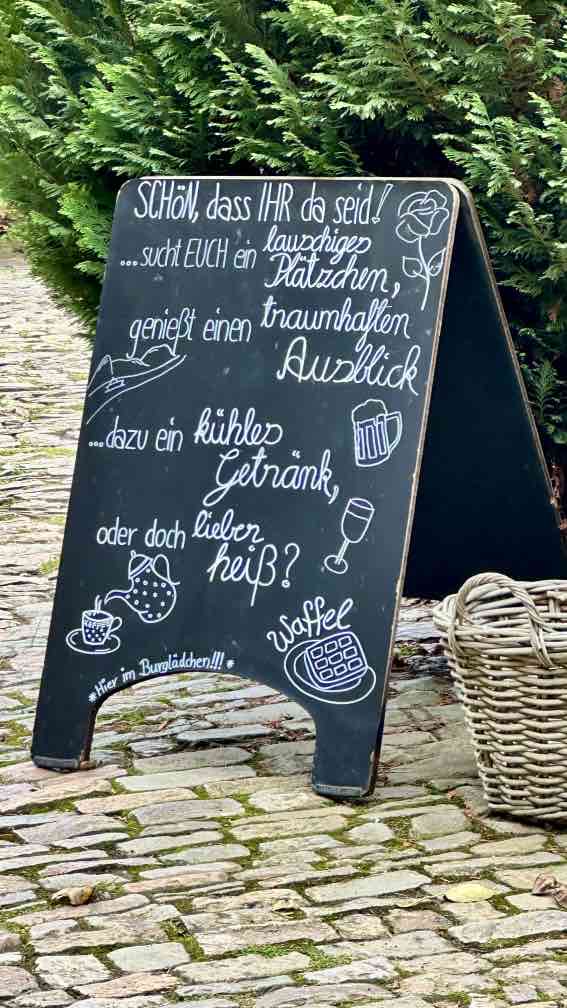 SCHÖN, dass IHR da seid!
...sucht EUCH ein lauschiges
Plätzchen,
genießt einen traumhaften
Ausblick
...dazu ein kühles
Getränk,
oder doch lieber
heiß?
KAFFEE
Waffel
*Hier im Burglädchen!!!*